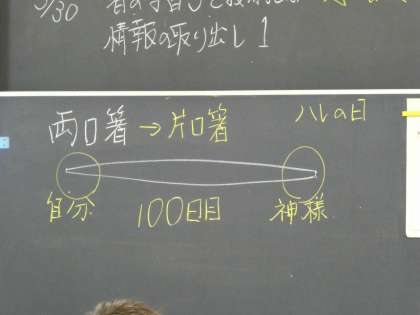 5/30
情報の取り出し 1
両口箸→片口箸
ハレの日
自分
100日目
神様